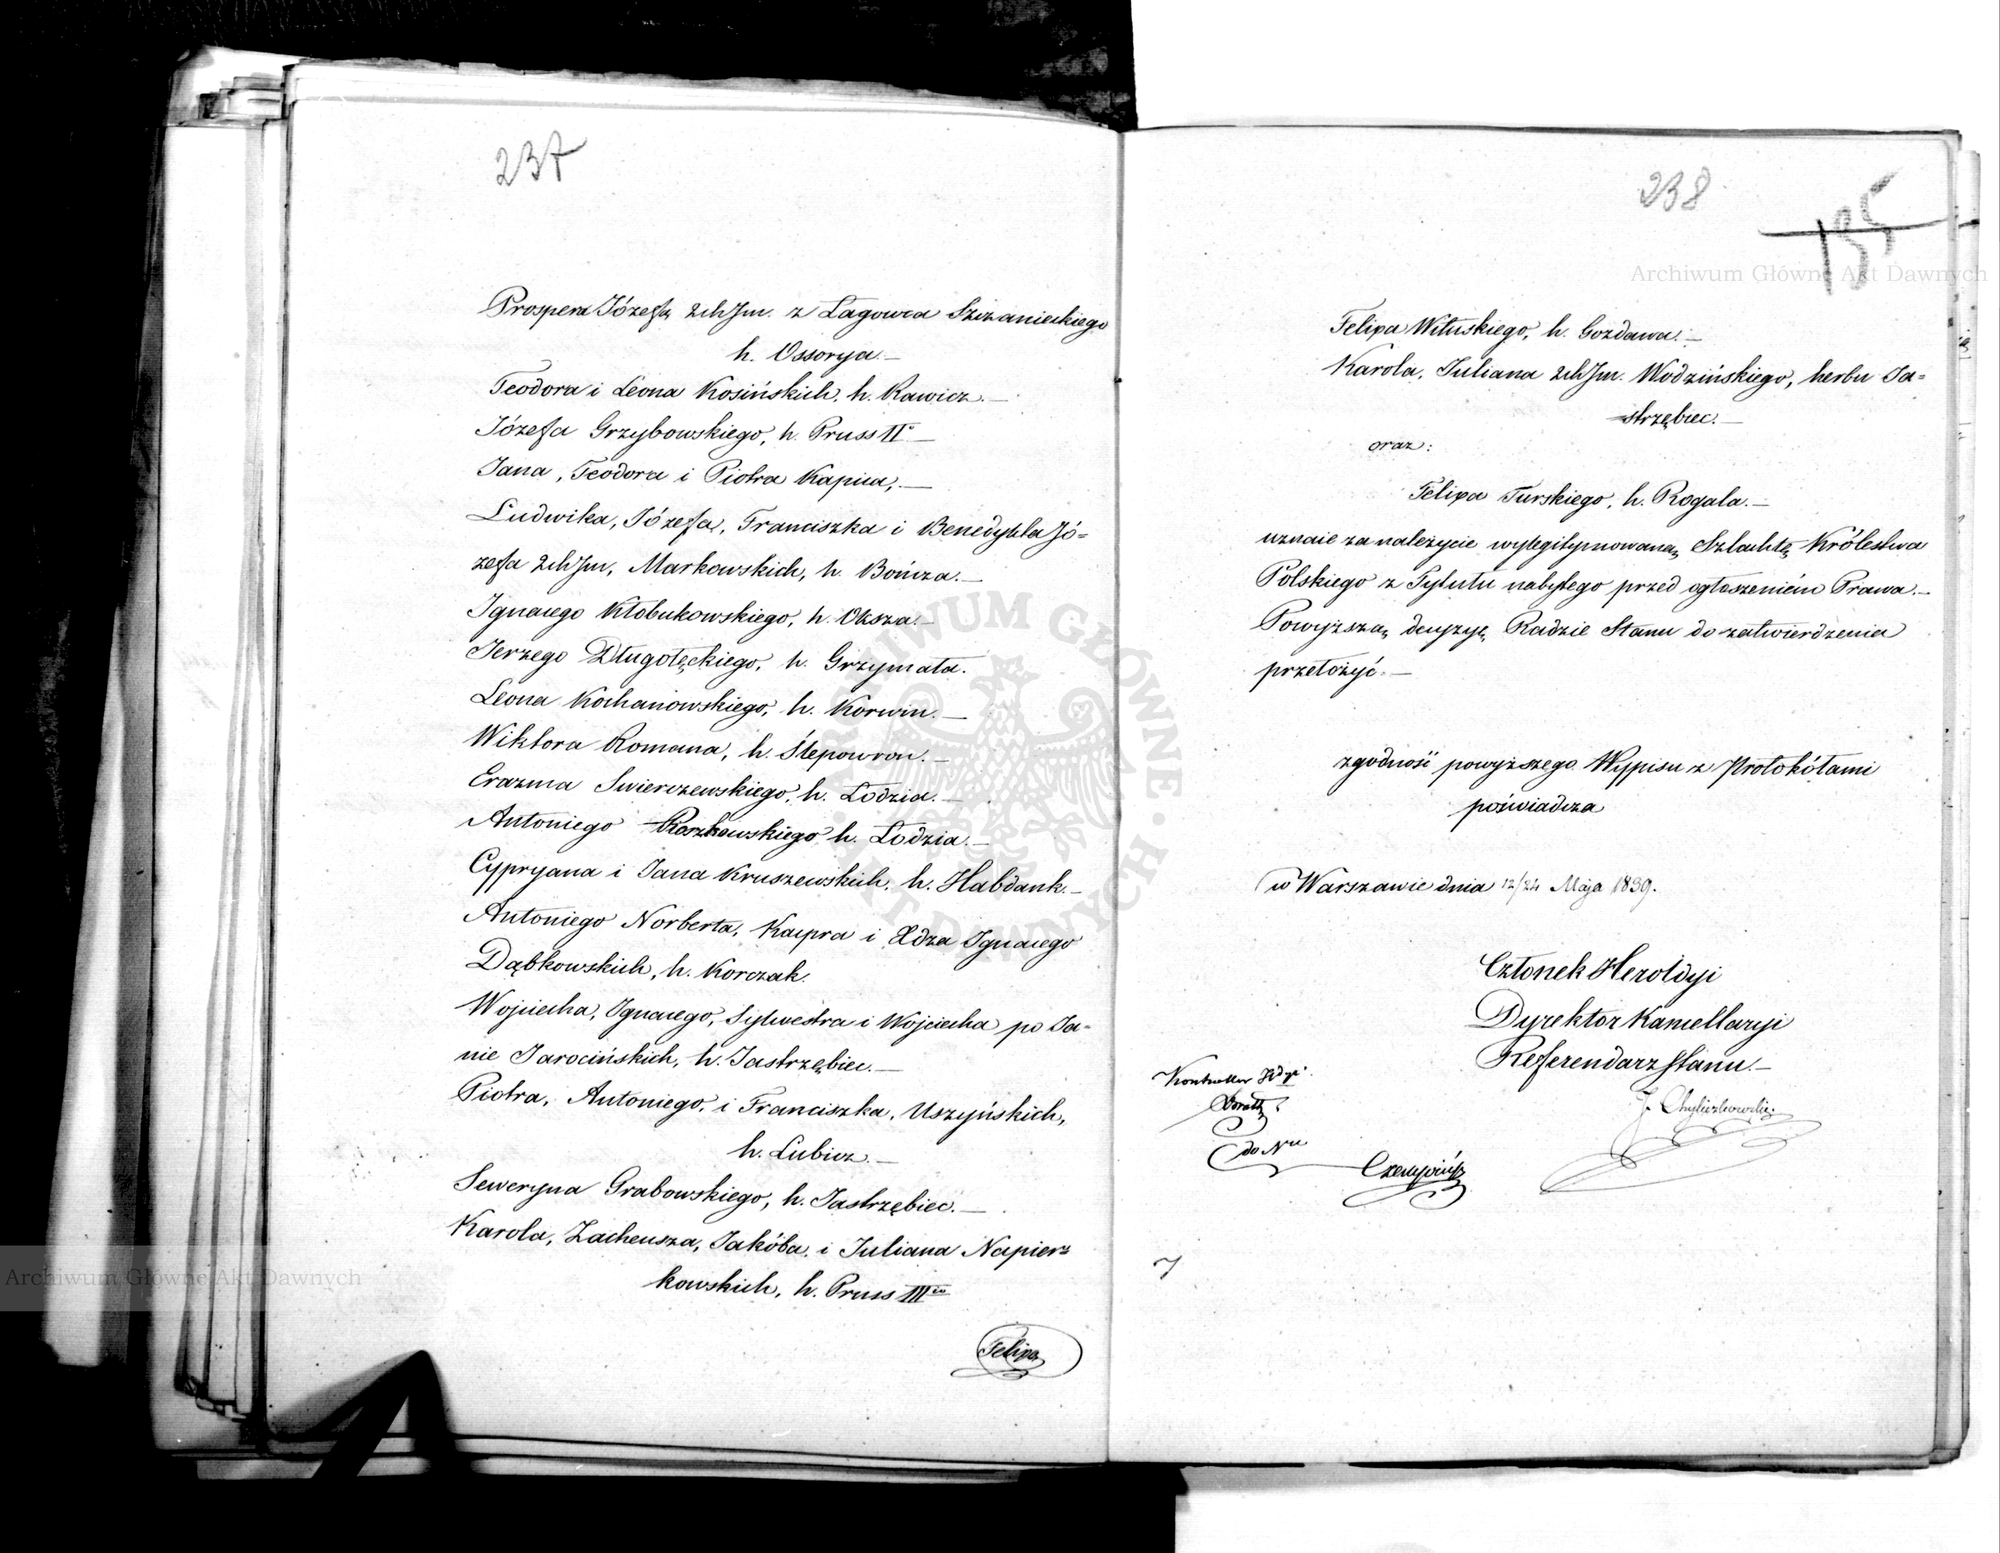 237
Prospera Józefa 2ch Jm. z Łagowca Szczanieckiego
h. Ossorya.—
Teodora i Leona Kosińskich, h. Rawicz.—
Józefa Grzybowskiego, h. Pruss IIº—
Jana, Teodora i Piotra Kapica,.—
Ludwika, Józefa, Franciszka i Benedykta Jó=
zefa 2ch Jm, Markowskich, h. Bończa.—
Ignacego Kłobukowskiego, h. Oksza.—
Jerzego Długołęckiego, h. Grzymała.
Leona Kochanowskiego, h. Korwin.—
Wiktora Romana, h. Ślepowron.—
Erazma Swierczewskiego, h. Łodzia.—
Antoniego Roszkowskiego h. Łodzia.—
Cypryana i Jana Kruszewskich, h. Habdank.—
Antoniego Norberta, Kacpra i Xdza Ignacego
Dąbkowskich, h. Korczak.
Wojciecha, Ignacego, Sylwestra i Wojciecha po Ja=
nie Jarocińskich, h. Jastrzębiec.—
Piotra, Antoniego, i Franciszka, Uszyńskich,
h. Lubicz.—
Seweryna Grabowskiego, h. Jastrzębiec.—
Karola, Zacheusza, Jakóba, i Juliana Napier=
kowskich, h. Pruss IIIio
Felipa
238
135
Felipa Wituskiego, h. Gozdawa.—
Karola, Juliana 2ch Jm. Wodzińskiego, herbu Ja=
strzębiec.—
oraz:
Felipa Turskiego, h. Rogala.—
uznaie za należycie wylegitymowaną Szlachtę Królestwa
Polskiego z Tytułu nabytego przed ogłoszeniem Prawa.—
Powyższą decyzyę Radzie Stanu do zatwierdzenia
przełożyć.—
zgodność powyższego Wypisu z Protokółami
poświadcza
w Warszawie dnia 12/24 Maja 1839.
Członek Heroldyi
Dyrektor Kancellaryi
Referendarz Stanu.—
J. Chyliczkowski
Kontroller
do Nru
Archiwum Główne Akt Dawnych
Archiwum Główne Akt Dawnych
ARCHIWUM GŁÓWNE AKT DAWNYCH